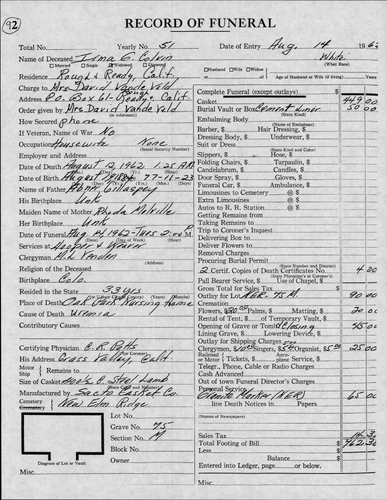 92
RECORD OF FUNERAL
Total No. Yearly No. 51 Date of Entry Aug. 14 1962
Name of Deceased Irma G. Colvin White
Married Single Widowed Husband Wife Widow (What Race)
Residence Rough & Ready, Calif. Age of Husband or Wife (if living)
Charge to Mrs David Vande Veld
Address P.O. Box 61- Rough & Ready, Calif.
Order given by Mrs David Vande Veld
(or informant)
How Secured phone
If Veteran, Name of War No
Occupation Housewife None
(Social Security Number)
Employer and Address
Date of Death August 12, 1962 1:25 A.M.
Date of Birth 77-11-23
Name of Father
His Birthplace Unk
Maiden Name of Mother Rhoda Melville
Her Birthplace Unk
Date of Funeral Aug 14, 1962-Tues 2:00 P.
Services at Hooper & Weaver
Clergyman
Religion of the Deceased
Birthplace Colo.
Resided in the State 33 yrs
Place of Death Oak Park Nursing Home
Cause of Death Uremia
Contributory Causes
Certifying Physician
His Address Grass Valley, Calif.
Motor
Ship Remains to
Size of Casket
Manufactured by Sacto Casket Co.
Cemetery New Elm Ridge
Lot No.
Grave No. 75
Section No. M
Block No.
Owner
Diagram of Lot or Vault
Misc.
Complete Funeral (except outlays) $
Casket 449 00
Burial Vault or Box Cement Liner 50 00
(State Kind)
Embalming Body
(Name of Embalmer)
Barber, $ Hair Dressing, $
Dressing Body, $ Underwear, $
Suit or Dress
(State Kind and Color)
Slippers, $ Hose, $
Folding Chairs, $ Tarpaulin, $
Candelabrum, $ Candles, $
Door Spray, $ Gloves, $
Funeral Car, $ Ambulance, $
Limousines to Cemetery @ $
Extra Limousines @ $
Autos to R. R. Station @ $
Getting Remains from
Taking Remains to
Trip to Coroner's Inquest
Delivering Box to
Deliver Flowers to
Removal Charges
Procuring Burial Permit
2 Certif. Copies of Death Certificates No. 4 00
Pall Bearer Service $ Use of Chapel, $
Gross Total for Sales Tax $
Outlay for Lot 90 00
Flowers, $ Palms, $ Matting, $ 20 00
Rental of Tent, $ of Temporary Vault $
Opening of Grave or Tomb Closing 45 00
Lining Grave, $ Lowering Device, $
Outlay for Shipping Charges
Clergyman, $ Singers, $ Organist, $ 25 00
Telegr., Phone, Cable or Radio Charges
Cash Advanced
Out of town Funeral Director's Charges
Personal Service
Granite Marker 65 00
line Death Notices in Papers
(Names of Newspapers)
Sales Tax
Total Footing of Bill $
Less
Balance $
Entered into Ledger, page or below.
Misc.